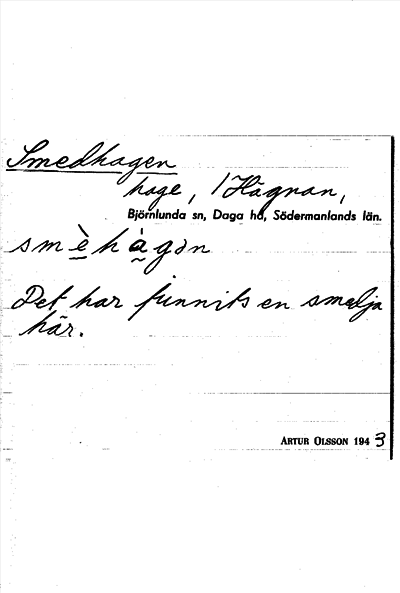 Smedhagen
hage, 1 Hägnan,
Björnlunda sn, Daga hd, Södermanlands län.
smèhàgən
Det har funnits en smedja
här.
ARTUR OLSSON 1943